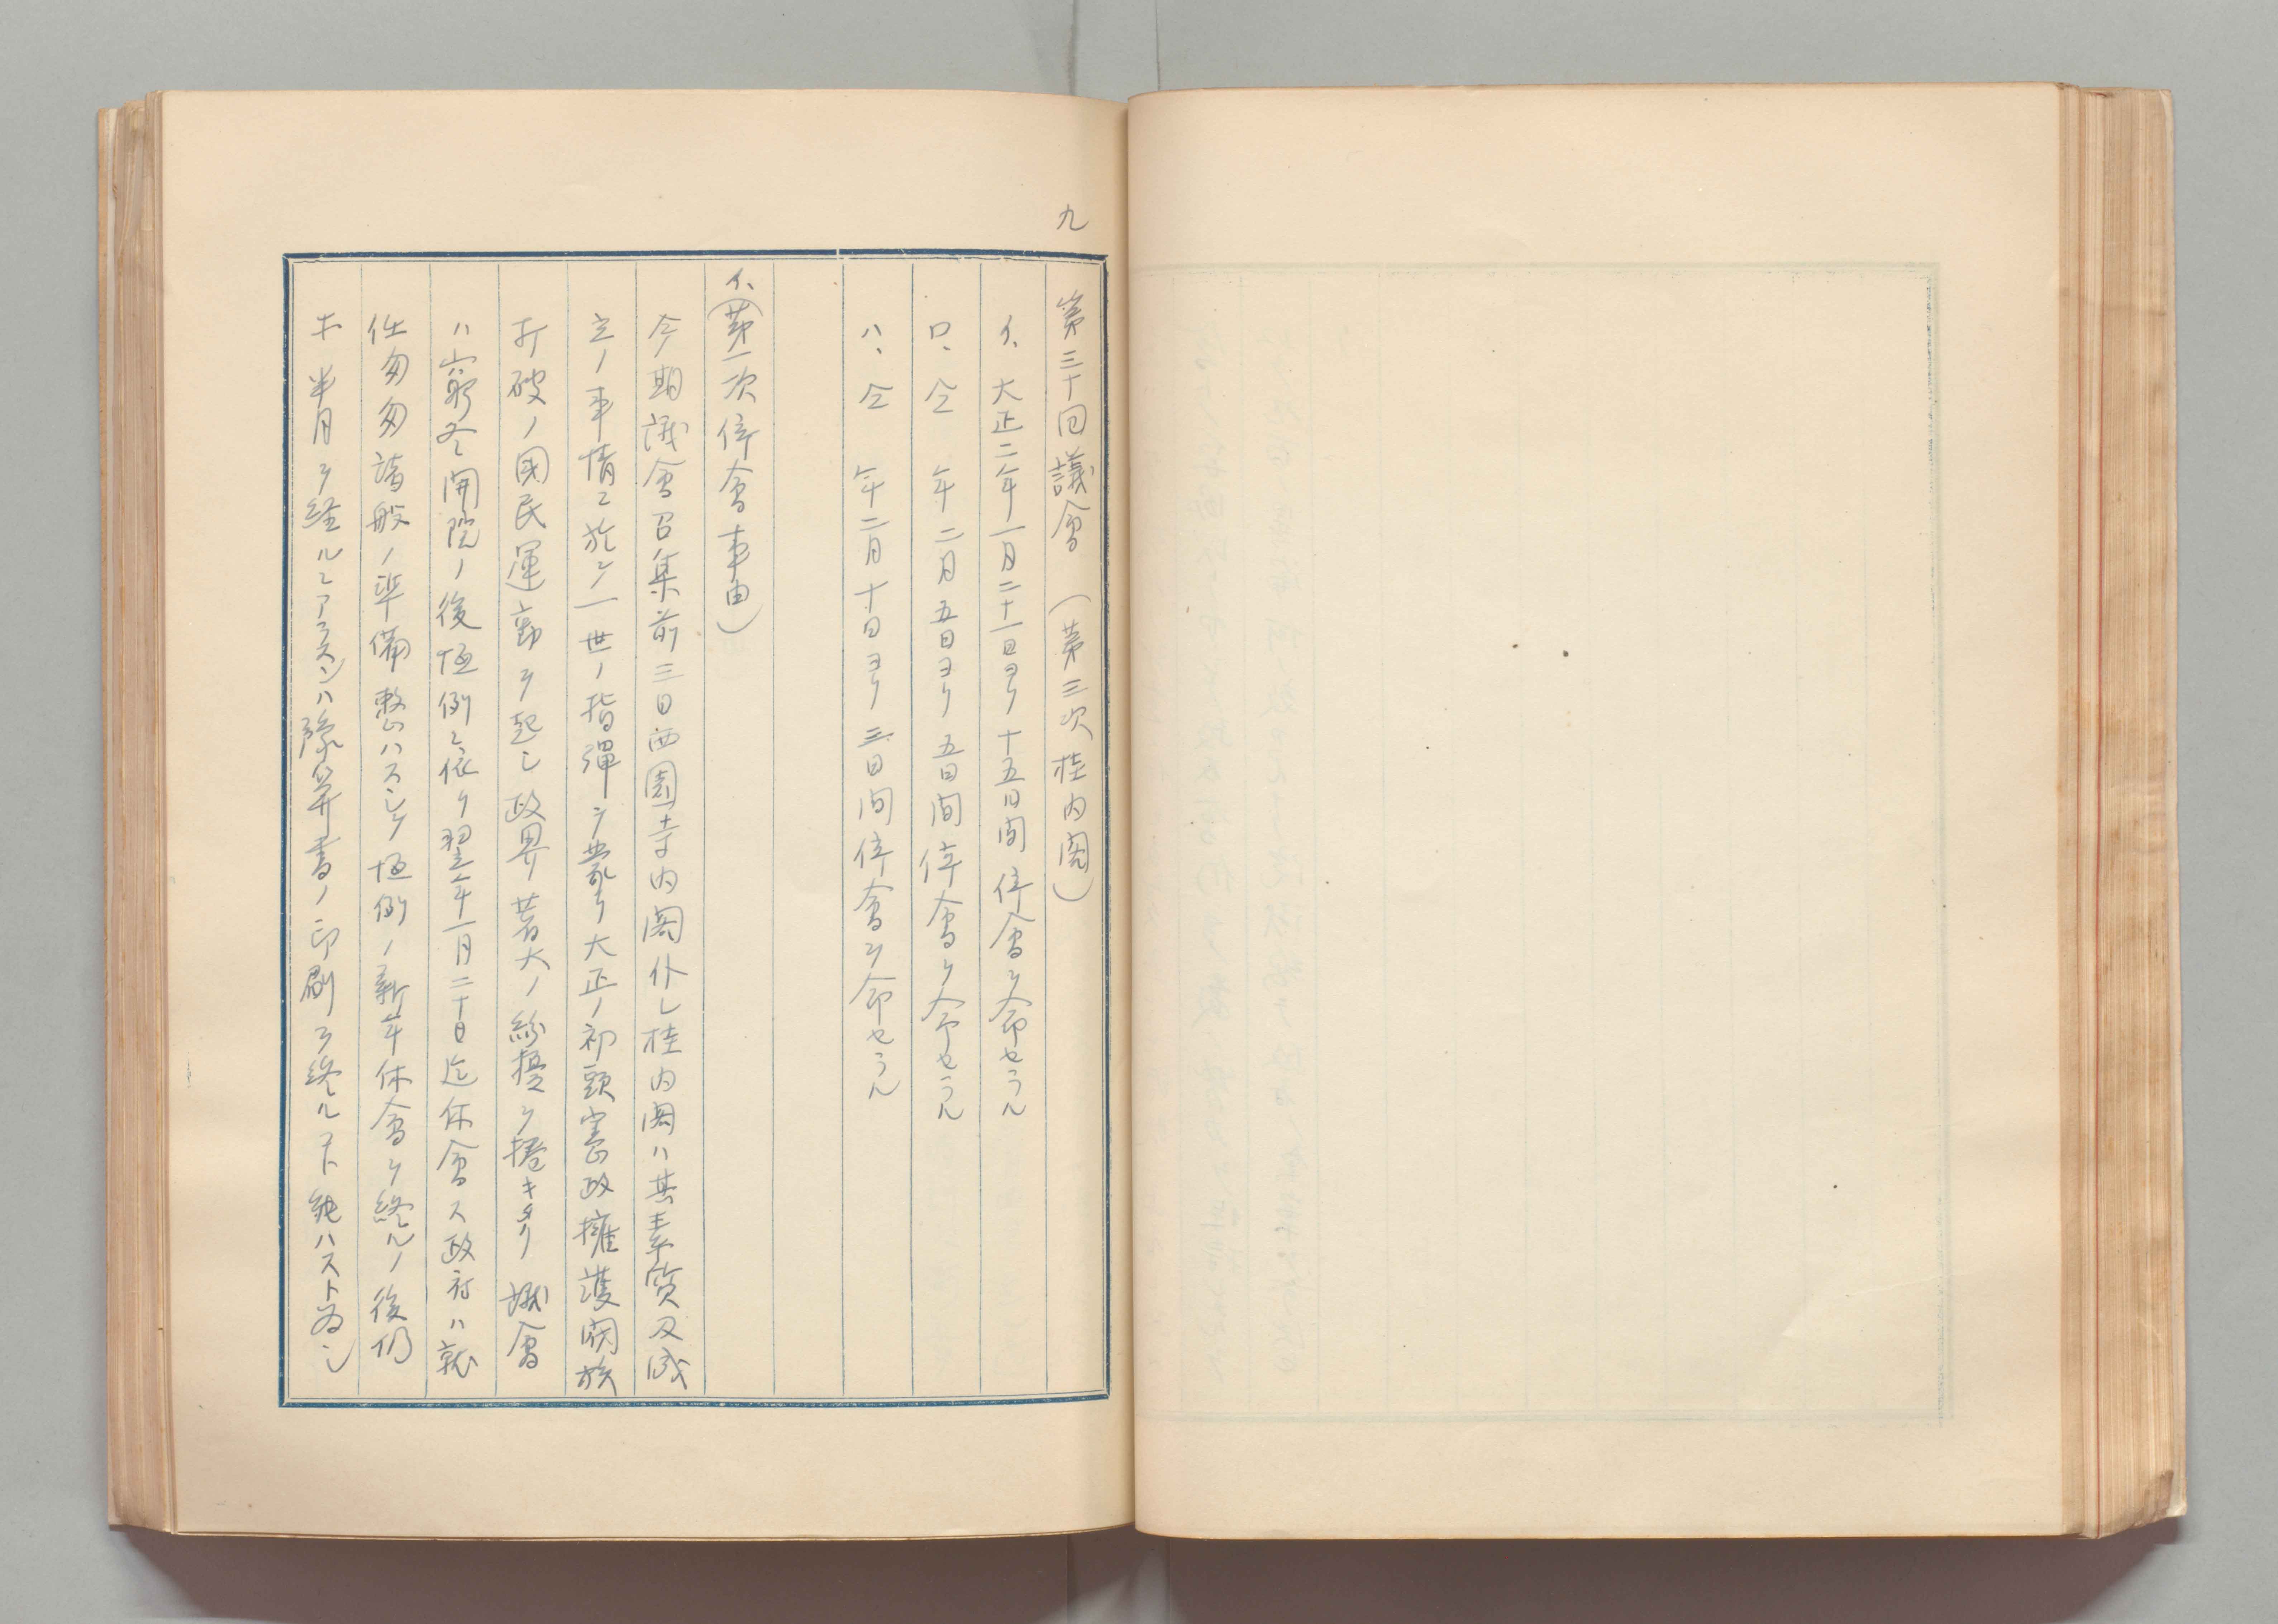 九
第三十回議會（第三次桂内閣）
イ、大正二年一月二十一日ヨリ十五日間停會ヲ命セラル
ロ、仝　年二月五日ヨリ五日間停會ヲ命セラル
ハ、仝　年二月十日ヨリ三日間停會ヲ命セラル
イ、（第一次停會事由）
今期議會召集前三日西園寺内閣仆レ桂内閣ハ其素質及成
立ノ事情ニ於テ一世ノ指彈ヲ蒙リ大正ノ初頭憲政擁護閥族
打破ノ國民運動ヲ起シ政界著大ノ紛擾ヲ捲キタリ議會
ハ窮冬開院ノ後恒例ニ依リ翌年一月二十日迄休會ス政府ハ就
任匆匆諸般ノ準備整ハスシテ恒例ノ新年休會ヲ終ルノ後仍
ホ半月ヲ経ルニアラスンハ豫算書ノ印刷ヲ終ルコト能ハストヲシ